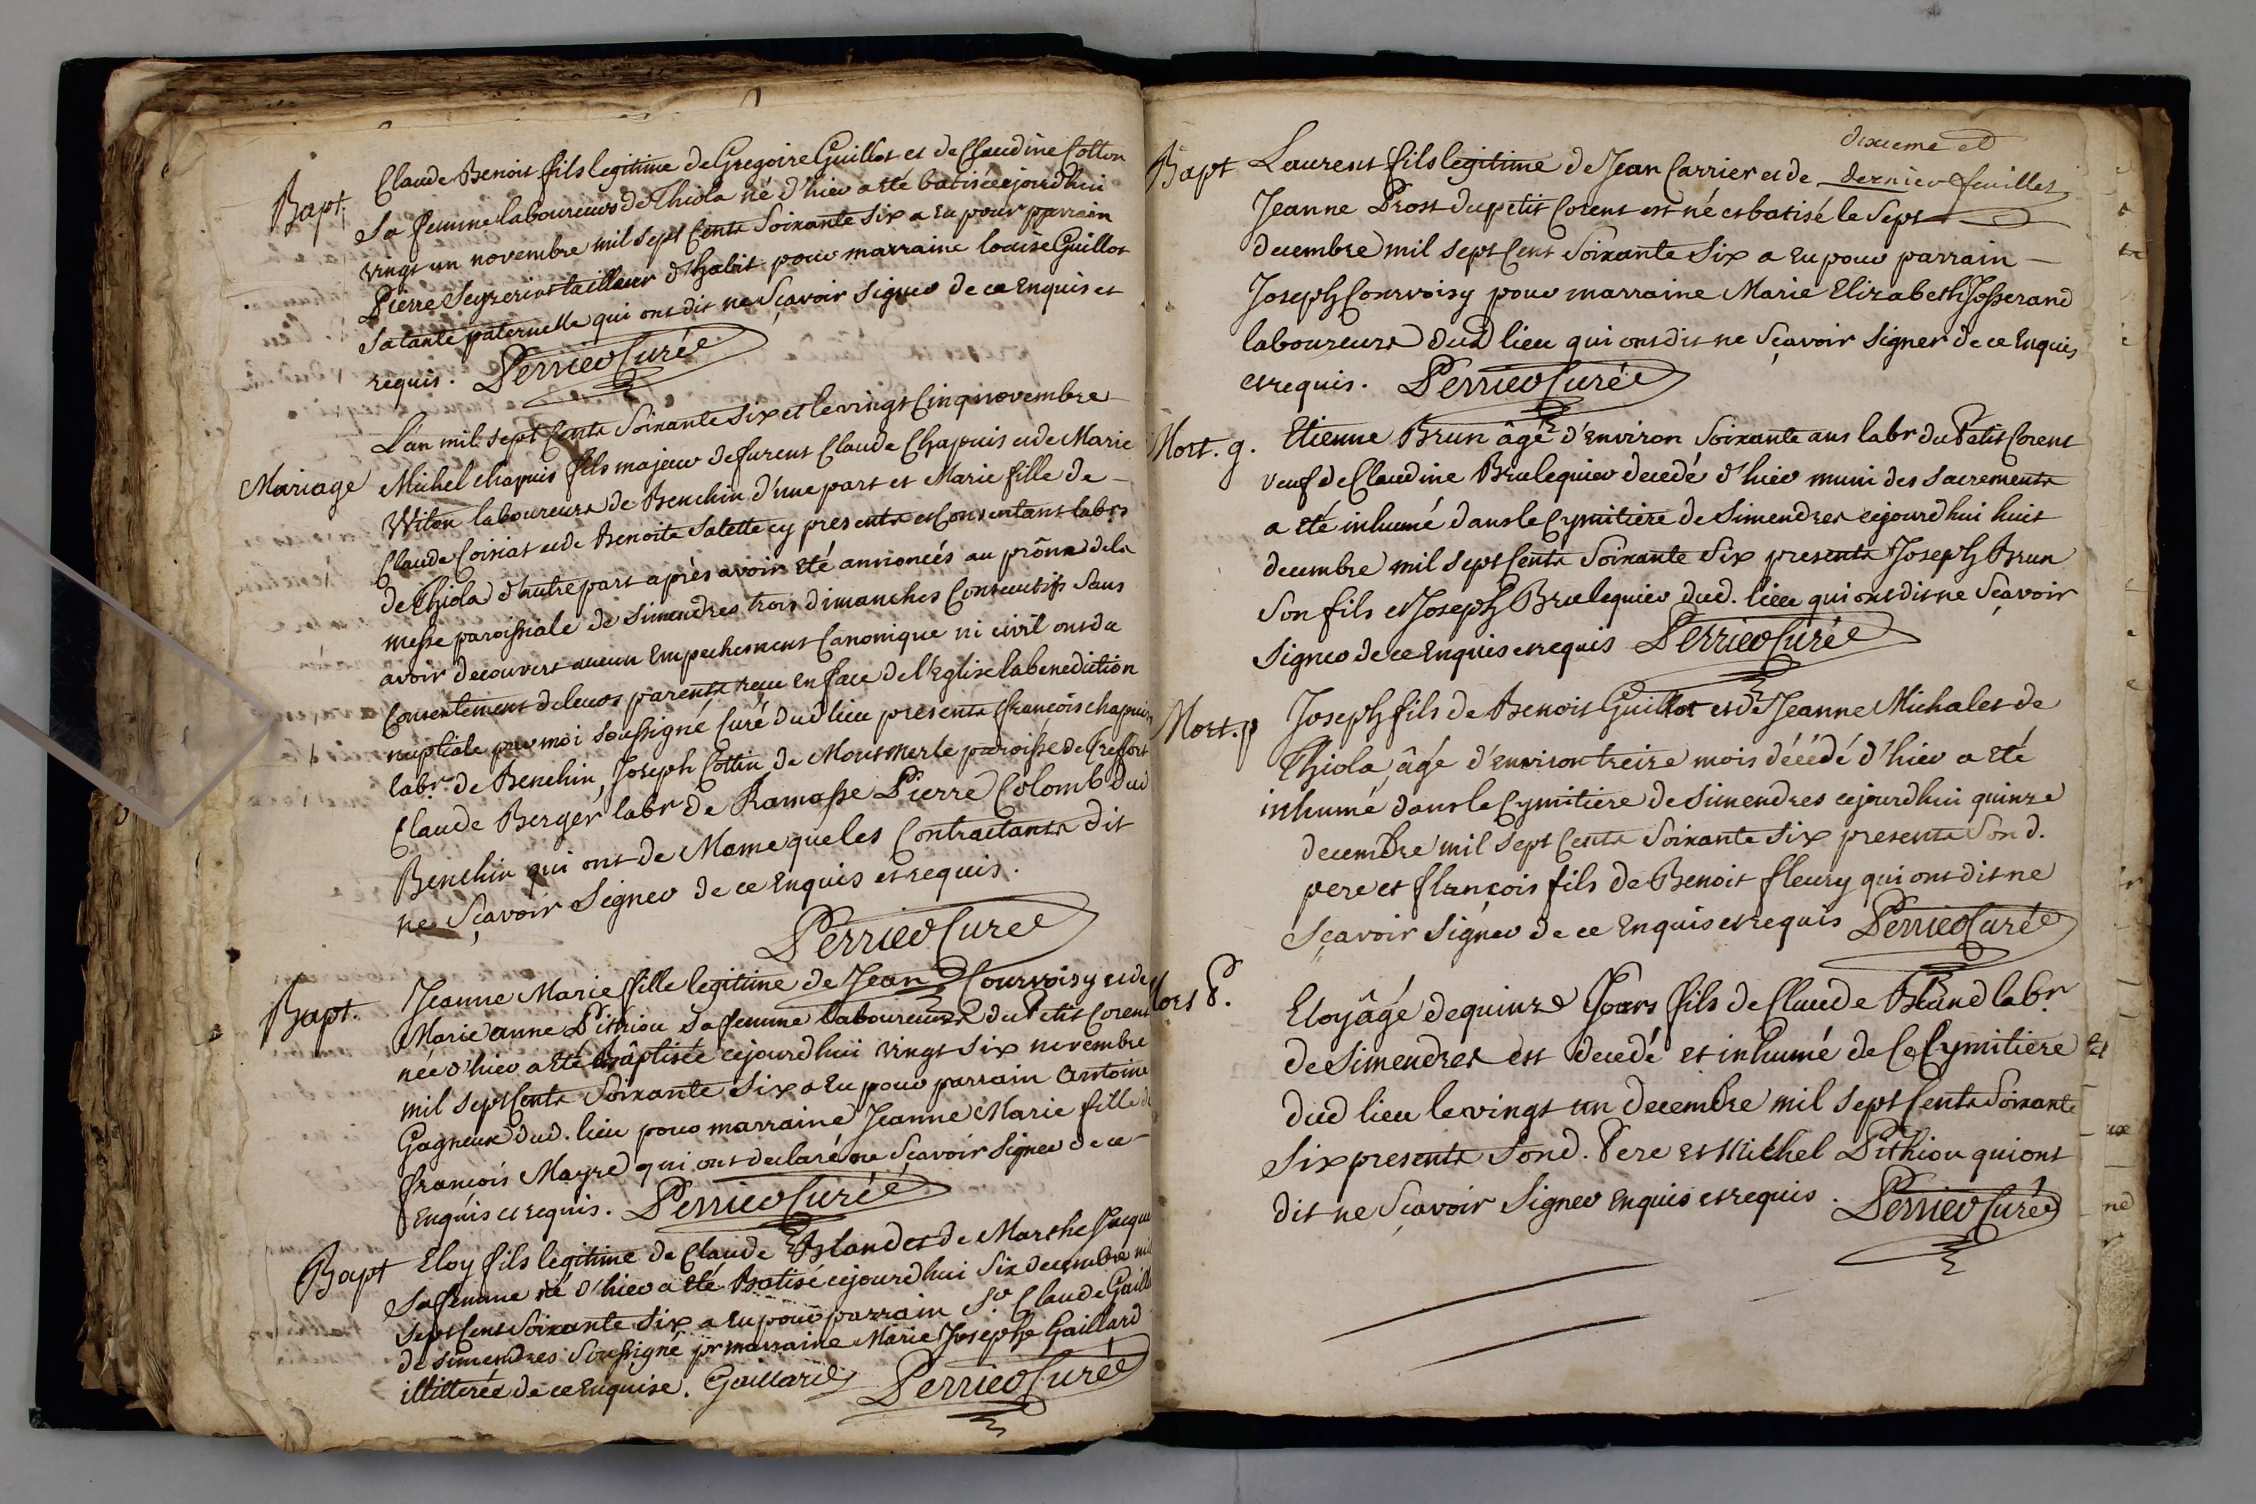 Bapt. Claude Benoit fils legitime de Gregoire Guillot et de Claudine Cotton
sa femme laboureurs de Thiola né d'hier a eté batisé cejourd'hui
vingt un novembre mil sept cents soixante six a eu pour parrain
Pierre tailleur d'habit pour marraine louise Guillot
sa tante paternelle qui ont dit ne sçavoir signer de ce enquis et
requis. Perrier Curée
Mariage L'an mil sept cents soixante six et le vingt cinq novembre
Michel chapuis fils majeur de furent Claude Chapuis et de Marie
Witon laboureurs de Benchin d'une part et Marie fille de
Claude Coisiat et de Benoite Salette cy presents et consentant labrs
de Thiola d'autre part après avoir eté annoncés au prône de la
messe paroissiale de Simendres trois dimanches consecutifs sans
avoir decouvert aucun empechement canonique ni civil ont du
consentement de leurs parents recu en face de l'Eglise la benediction
nuptiale par moi soussigné Curé dud lieu presents françois chapuis
labr. de Benchin, Joseph Cottin de Montmerle paroisse de Treffort
Claude Berger labr de Ramasse Pierre Colomb dud
Benchin qui ont de Mame que les Contractants dit
ne sçavoir signer de ce enquis et requis.
Perrier Curée
Bapt. Jeanne Marie fille legitime de Jean Courvoisy et de
Marie anne Pithiou sa femme laboureurs du Petit Corent
née d'hier a eté bâptisée cejourd'hui vingt six novembre
mil sept cents soixante six a eu pour parrain Antoine
Gagneux dud. lieu pour marraine Jeanne Marie fille de
françois Mayre qui ont declaré ne sçavoir signer de ce
enquis et requis. Perrier Curée
Bapt Eloy fils legitime de Claude Bland et de Marthe
sa femme né d'hier a eté batisé cejourd'hui six decembre mil
sept cent soixante six a eu pour parrain Sr. Claude
de Simendres soussigné pr marraine Marie Josephe Gaillard
illitterée de ce enquise. Gaillard Perrier Curée
dixieme et
dernier feuillet
Bapt Laurent fils legitime de Jean Carrier et de
Jeanne Prost du petit Corent est né et batisé le sept
decembre mil sept cent soixante six a eu pour parrain
Joseph Courvoisy pour marraine Marie Elizabeth Josserand
laboureurs dud lieu qui ont dit ne sçavoir signer de ce enquis
et requis. Perrier Curée
Mort. g. Etienne Brun âgé d'environ soixante ans labr du Petit Corent
veuf de Claudine Brulequier decedé d'hier muni des sacrements
a eté inhumé dans le Cymitiere de Simendres cejourd'hui huit
decembre mil sept cents soixante six presents Joseph Brun
son fils et Joseph Brulequier dud. lieu qui ont dit ne sçavoir
signer de ce enquis et requis Perrier Curée
Mort. p Joseph fils de Benoit Guillot et de Jeanne Michalet de
Thiola, âgé d'environ treize mois décédé d'hier a eté
inhumé dans le Cymitiere de Simendres cejourd'hui quinze
decembre mil sept cents soixante six presents son d.
pere et françois fils de Benoit fleury qui ont dit ne
sçavoir signer de ce enquis et requis Perrier Curée
Mort P. Eloy âgé de quinze Jours fils de Claude Bland labr.
de Simendres est decedé et inhumé de Ce Cymitiere
dud lieu le vingt un decembre mil sept cents soixante
six presents son d. Pere et Michel Pithiou qui ont
dit ne sçavoir signer enquis et requis. Perrier Curée